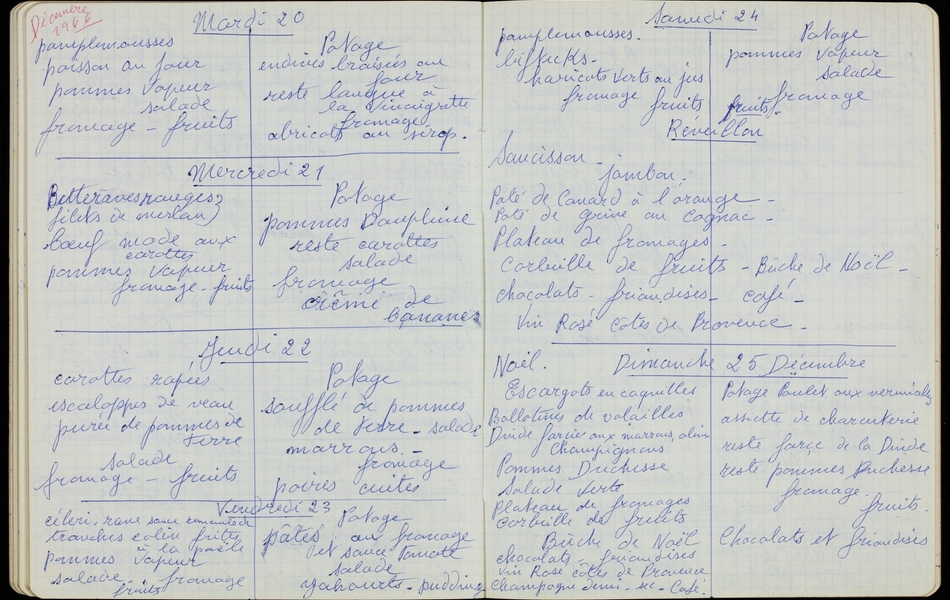 Décembre
1966
Mardi 20
pamplemousses
poisson au four
pommes vapeur
salade
fromage - fruits
Potage
endives braisées au
four
reste langue à
la vinaigrette
fromage
abricots au sirop.
Mercredi 21
Betteraves rouges
filets de merlan
bœuf mode aux
carottes
pommes vapeur
fromage - fruits
Potage
pommes Dauphine
reste carottes
salade
fromage
crème de
bananes
Jeudi 22
carottes rapées
escaloppes de veau
purée de pommes de
terre
salade
fromage - fruits
Potage
soufflé de pommes
de terre - salade
marrons -
fromage
poires cuites
Vendredi 23
céleri-rave sauce
tranches colin frites
à la poêle
pommes vapeur
salade - fromage
fruits
Potage
pâtes au fromage
et sauce tomate
salade
yahourts - pudding
Samedi 24
pamplemousses -
biftecks -
haricots verts au jus
fromage fruits
Potage
pommes vapeur
salade
fromage
fruits
Réveillon
Saucisson -
jambon -
Paté de Canard à l'orange -
Paté de grive au Cognac -
Plateau de fromages -
Corbeille de fruits - Bûche de Noël -
chocolats - friandises - café -
Vin Rosé Côtes de Provence -
Noël. Dimanche 25 Décembre
Escargots en coquilles
Ballotines de volailles
Dinde farcie aux marrons,
champignons
Pommes Duchesse
Salade verte
Plateau de fromages
Corbeille de fruits
Bûche de Noël
chocolats - friandises
Vin Rosé côtes de Provence
Champagne demi-sec - Café.
Potage Poulet aux vermicelles
assiette de charcuterie
reste farce de la Dinde
reste pommes Duchesse
fromage.
fruits.
Chocolats et friandises